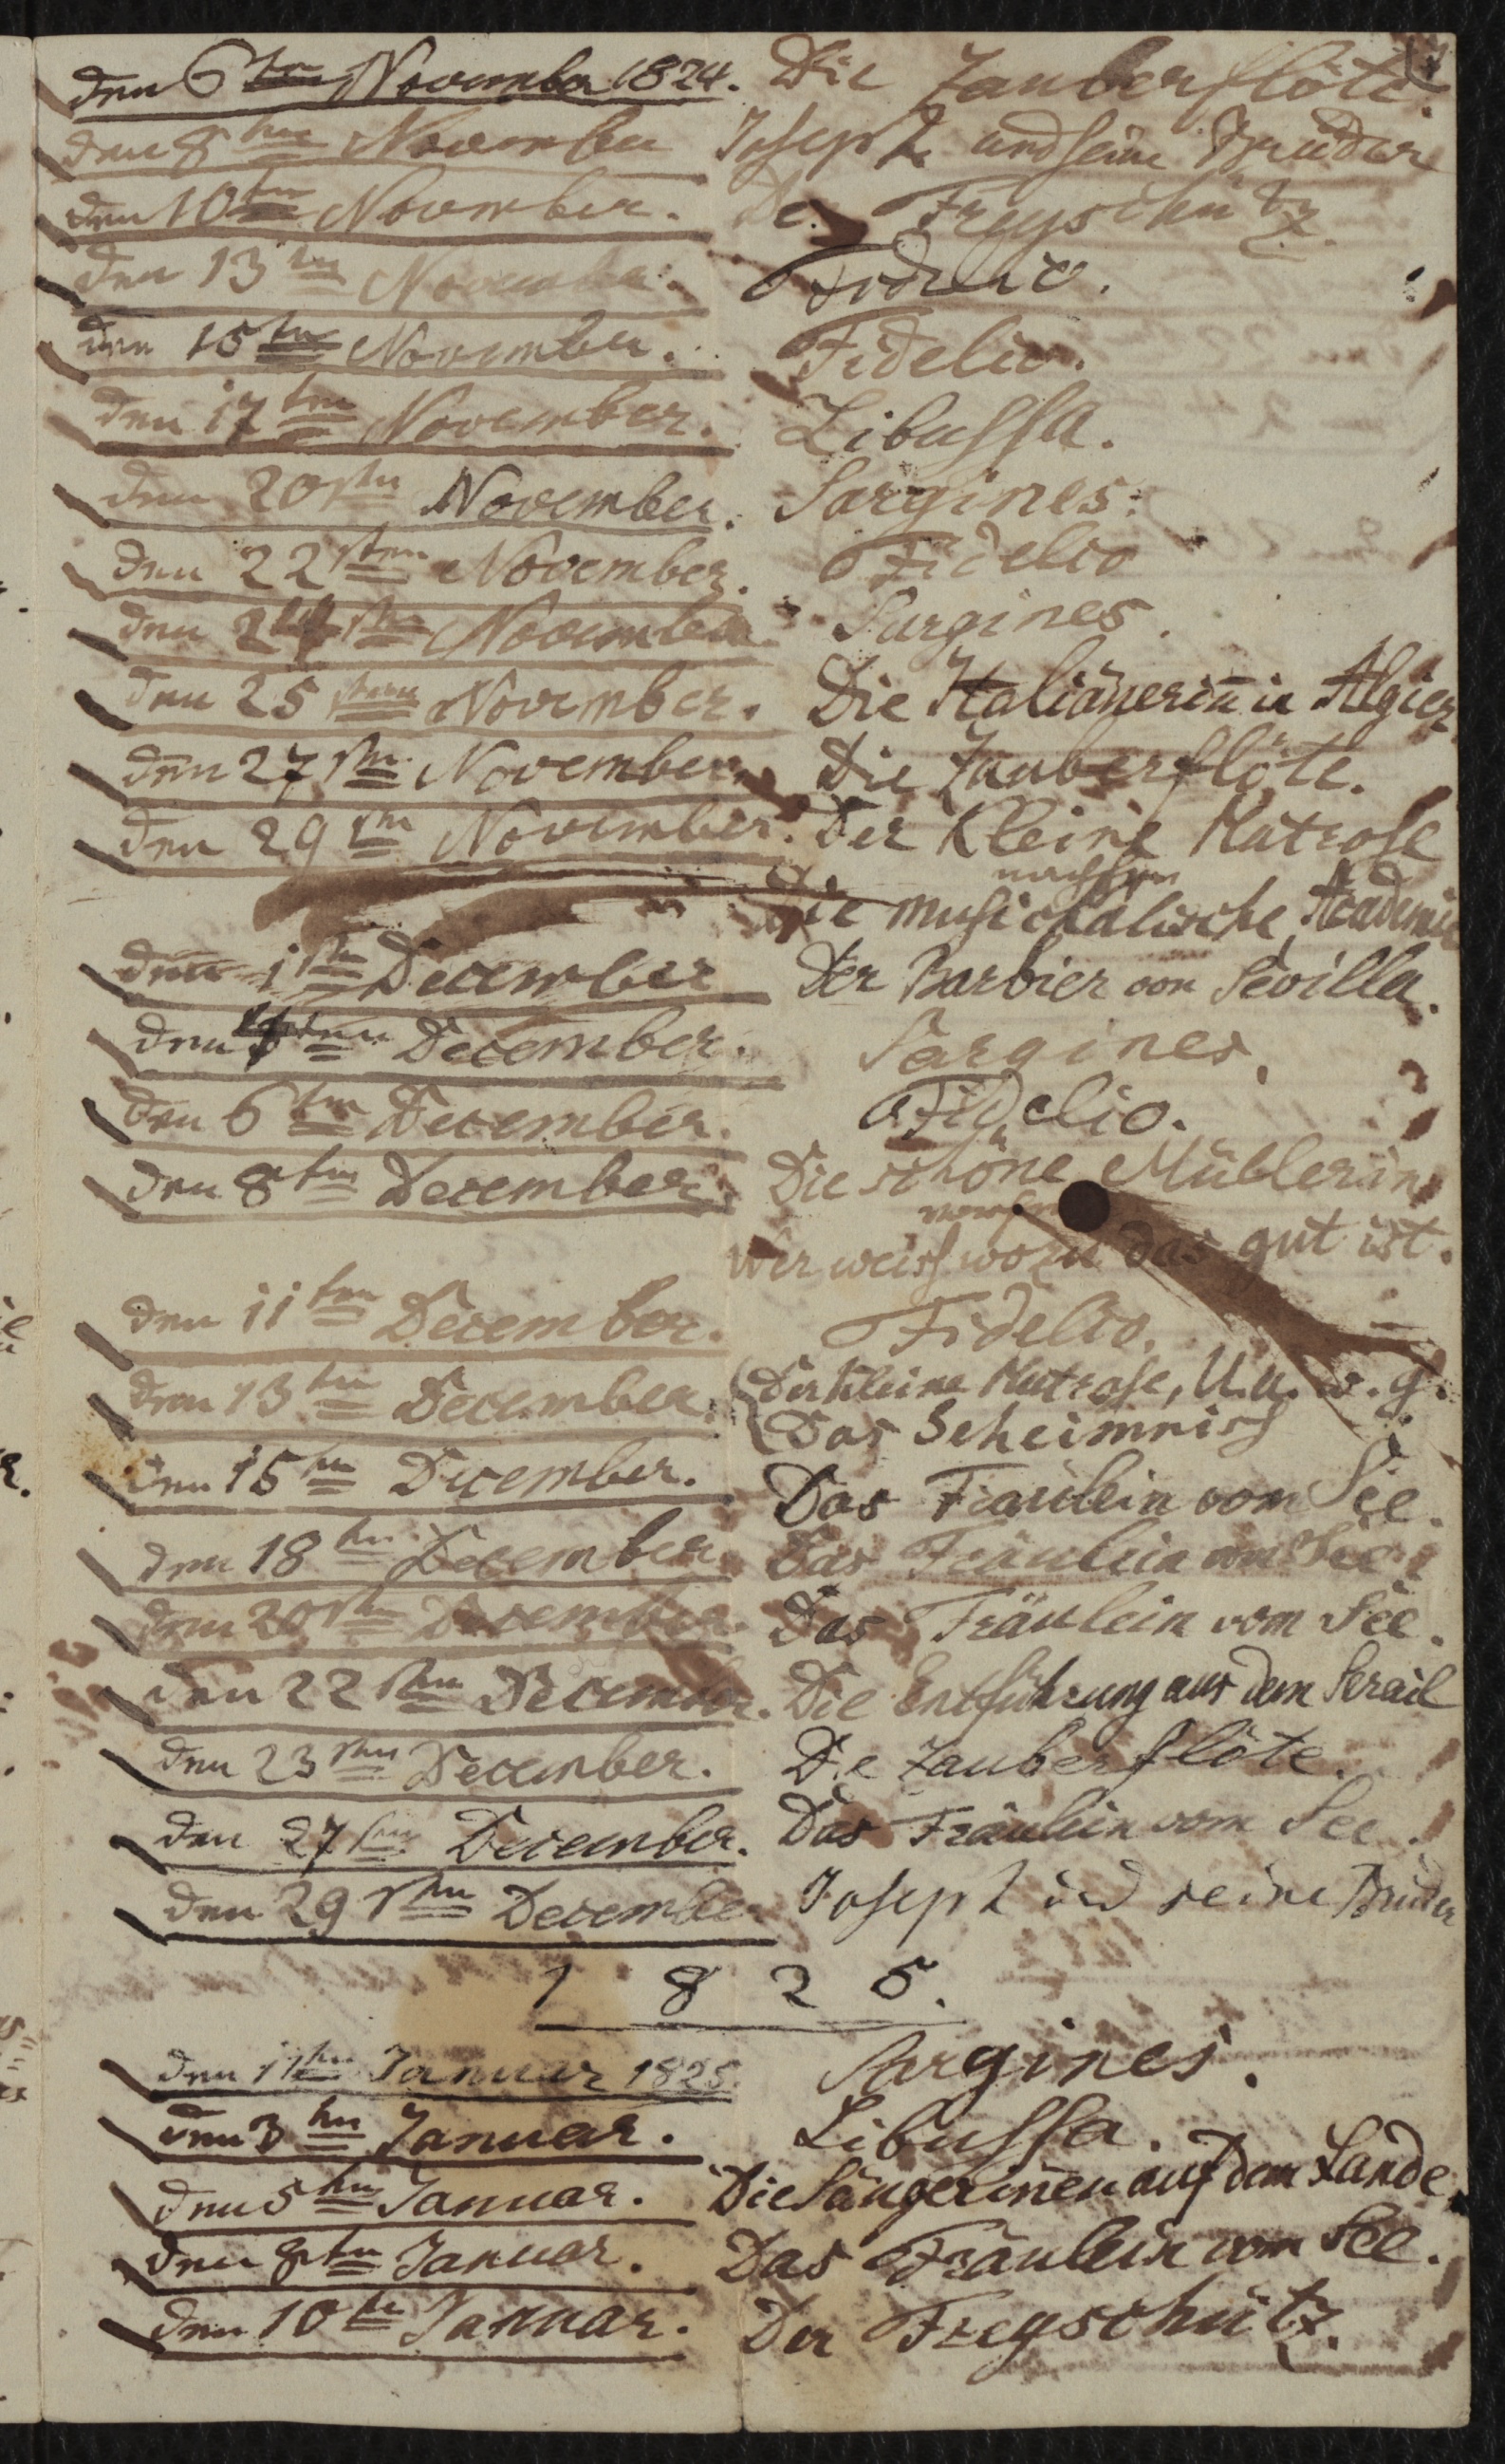 den 6ten November 1824. Die Zauberflöte.
den 8ten November Joseph und seine Brüder
den 10ten November. Der Freyschütz.
den 13ten November. Fidelio.
den 15ten November. Fidelio.
den 17ten November. Libussa.
den 20sten November. Sargines.
den 22sten November. Fidelio
den November Sargines.
den 25sten November. Die Italiänerin̄ in Algier
den 27sten November. Die Zauberflöte.
den 29sten November. Der Kleine Matrose
nachher
Die musickalische Academie
den 1sten December Der Barbier von Sevilla.
den December. Sargines.
den 6ten December. Fidelio.
den 8ten December. Die schöne Müllerin
vorher
Wer weiss wozu das gut ist.
den 11ten December. Fidelio.
den 13ten December. Der kleine Matrose, U. u. w. g.
Das Geheimniss
den 15ten December. Das Fräulein vom See.
den 18ten December Das Fräulein vom See.
den 20sten December. Das Fräulein vom See.
den 22sten December. Die Entführung aus dem Serail
den 23sten December. Die Zauberflöte.
den 27sten December. Das Fräulein vom See.
den 29sten December Joseph und seine Brüder
1825.
den 1ten Januar 1825. Sargines.
den 3ten Januar. Libussa.
den 5ten Januar. Die Sängerin̄en auf dem Lande.
den 8ten Januar. Das Fräulein vom See.
den 10ten Januar. Der Freyschütz.